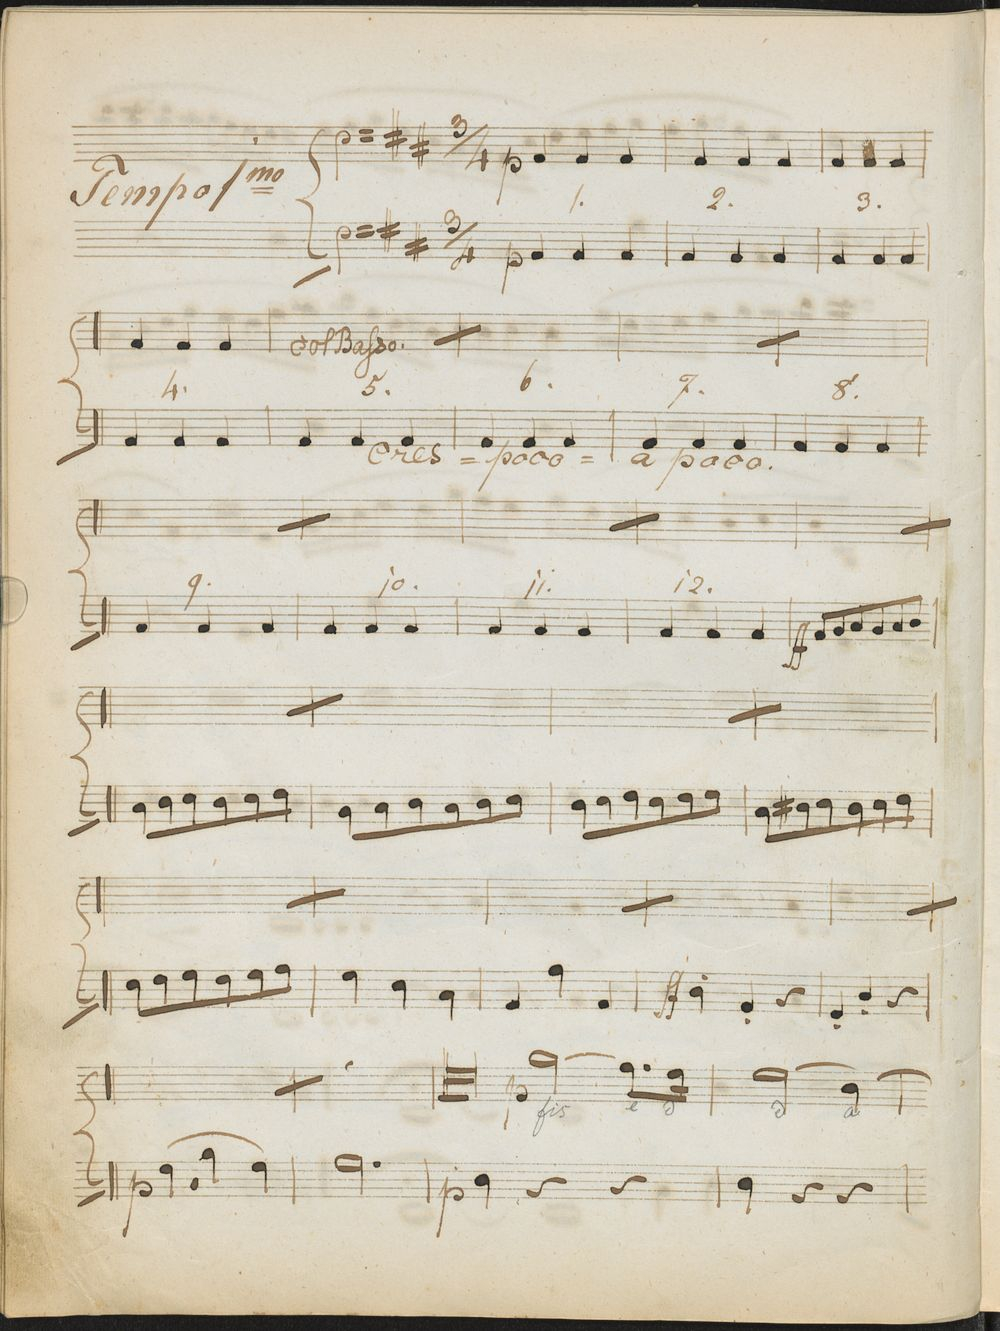 Tempo 1mo
3/4 p
1. 2. 3.
3/4 p
Col Basso.
4. 5. 6. 7. 8.
Cres = poco = a poco.
9. 10. 11. 12.
ff
ff
p
fis e d d a
p p